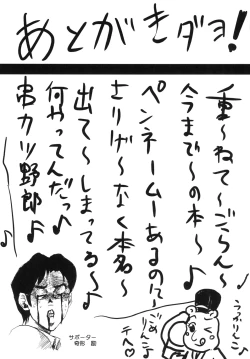 あとがきダヨ!
重〜ねて〜ごらん〜
今まで〜の本〜♪
ペンネームーあるのに〜
さりげ〜なく本名〜
出て〜しまってる〜♪
何やってんだっ♪
串カツ野郎♪
ごめりんこ♪
チヘ♡
サポーター
奇形